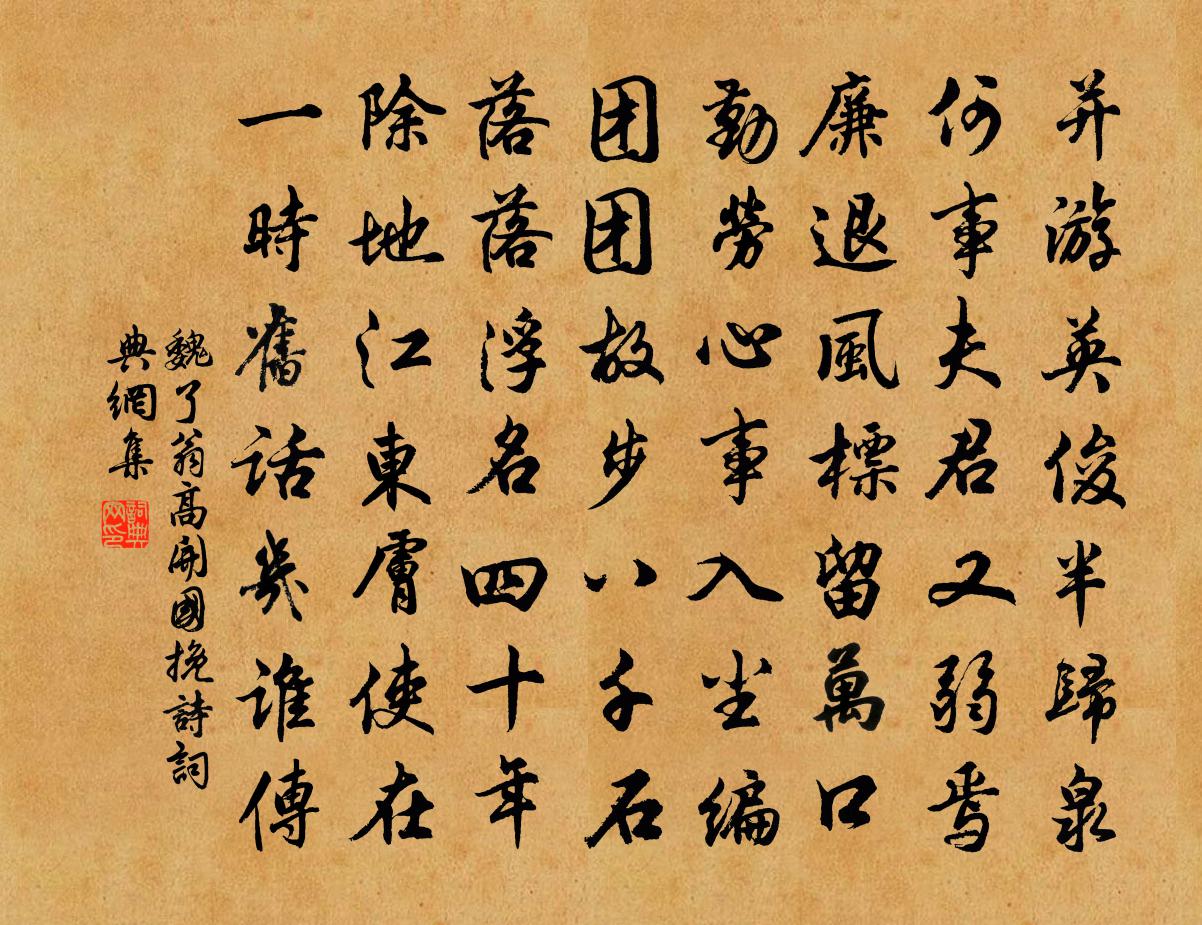 并游英俊半歸泉
何事夫君又弱焉
廉退風標留萬口
勤勞心事入尘编
团团故步八千石
落落浮名四十年
除地江東膚使在
一時舊話幾誰傳
魏了翁高開國挽詩詞
典網集
詞典網印